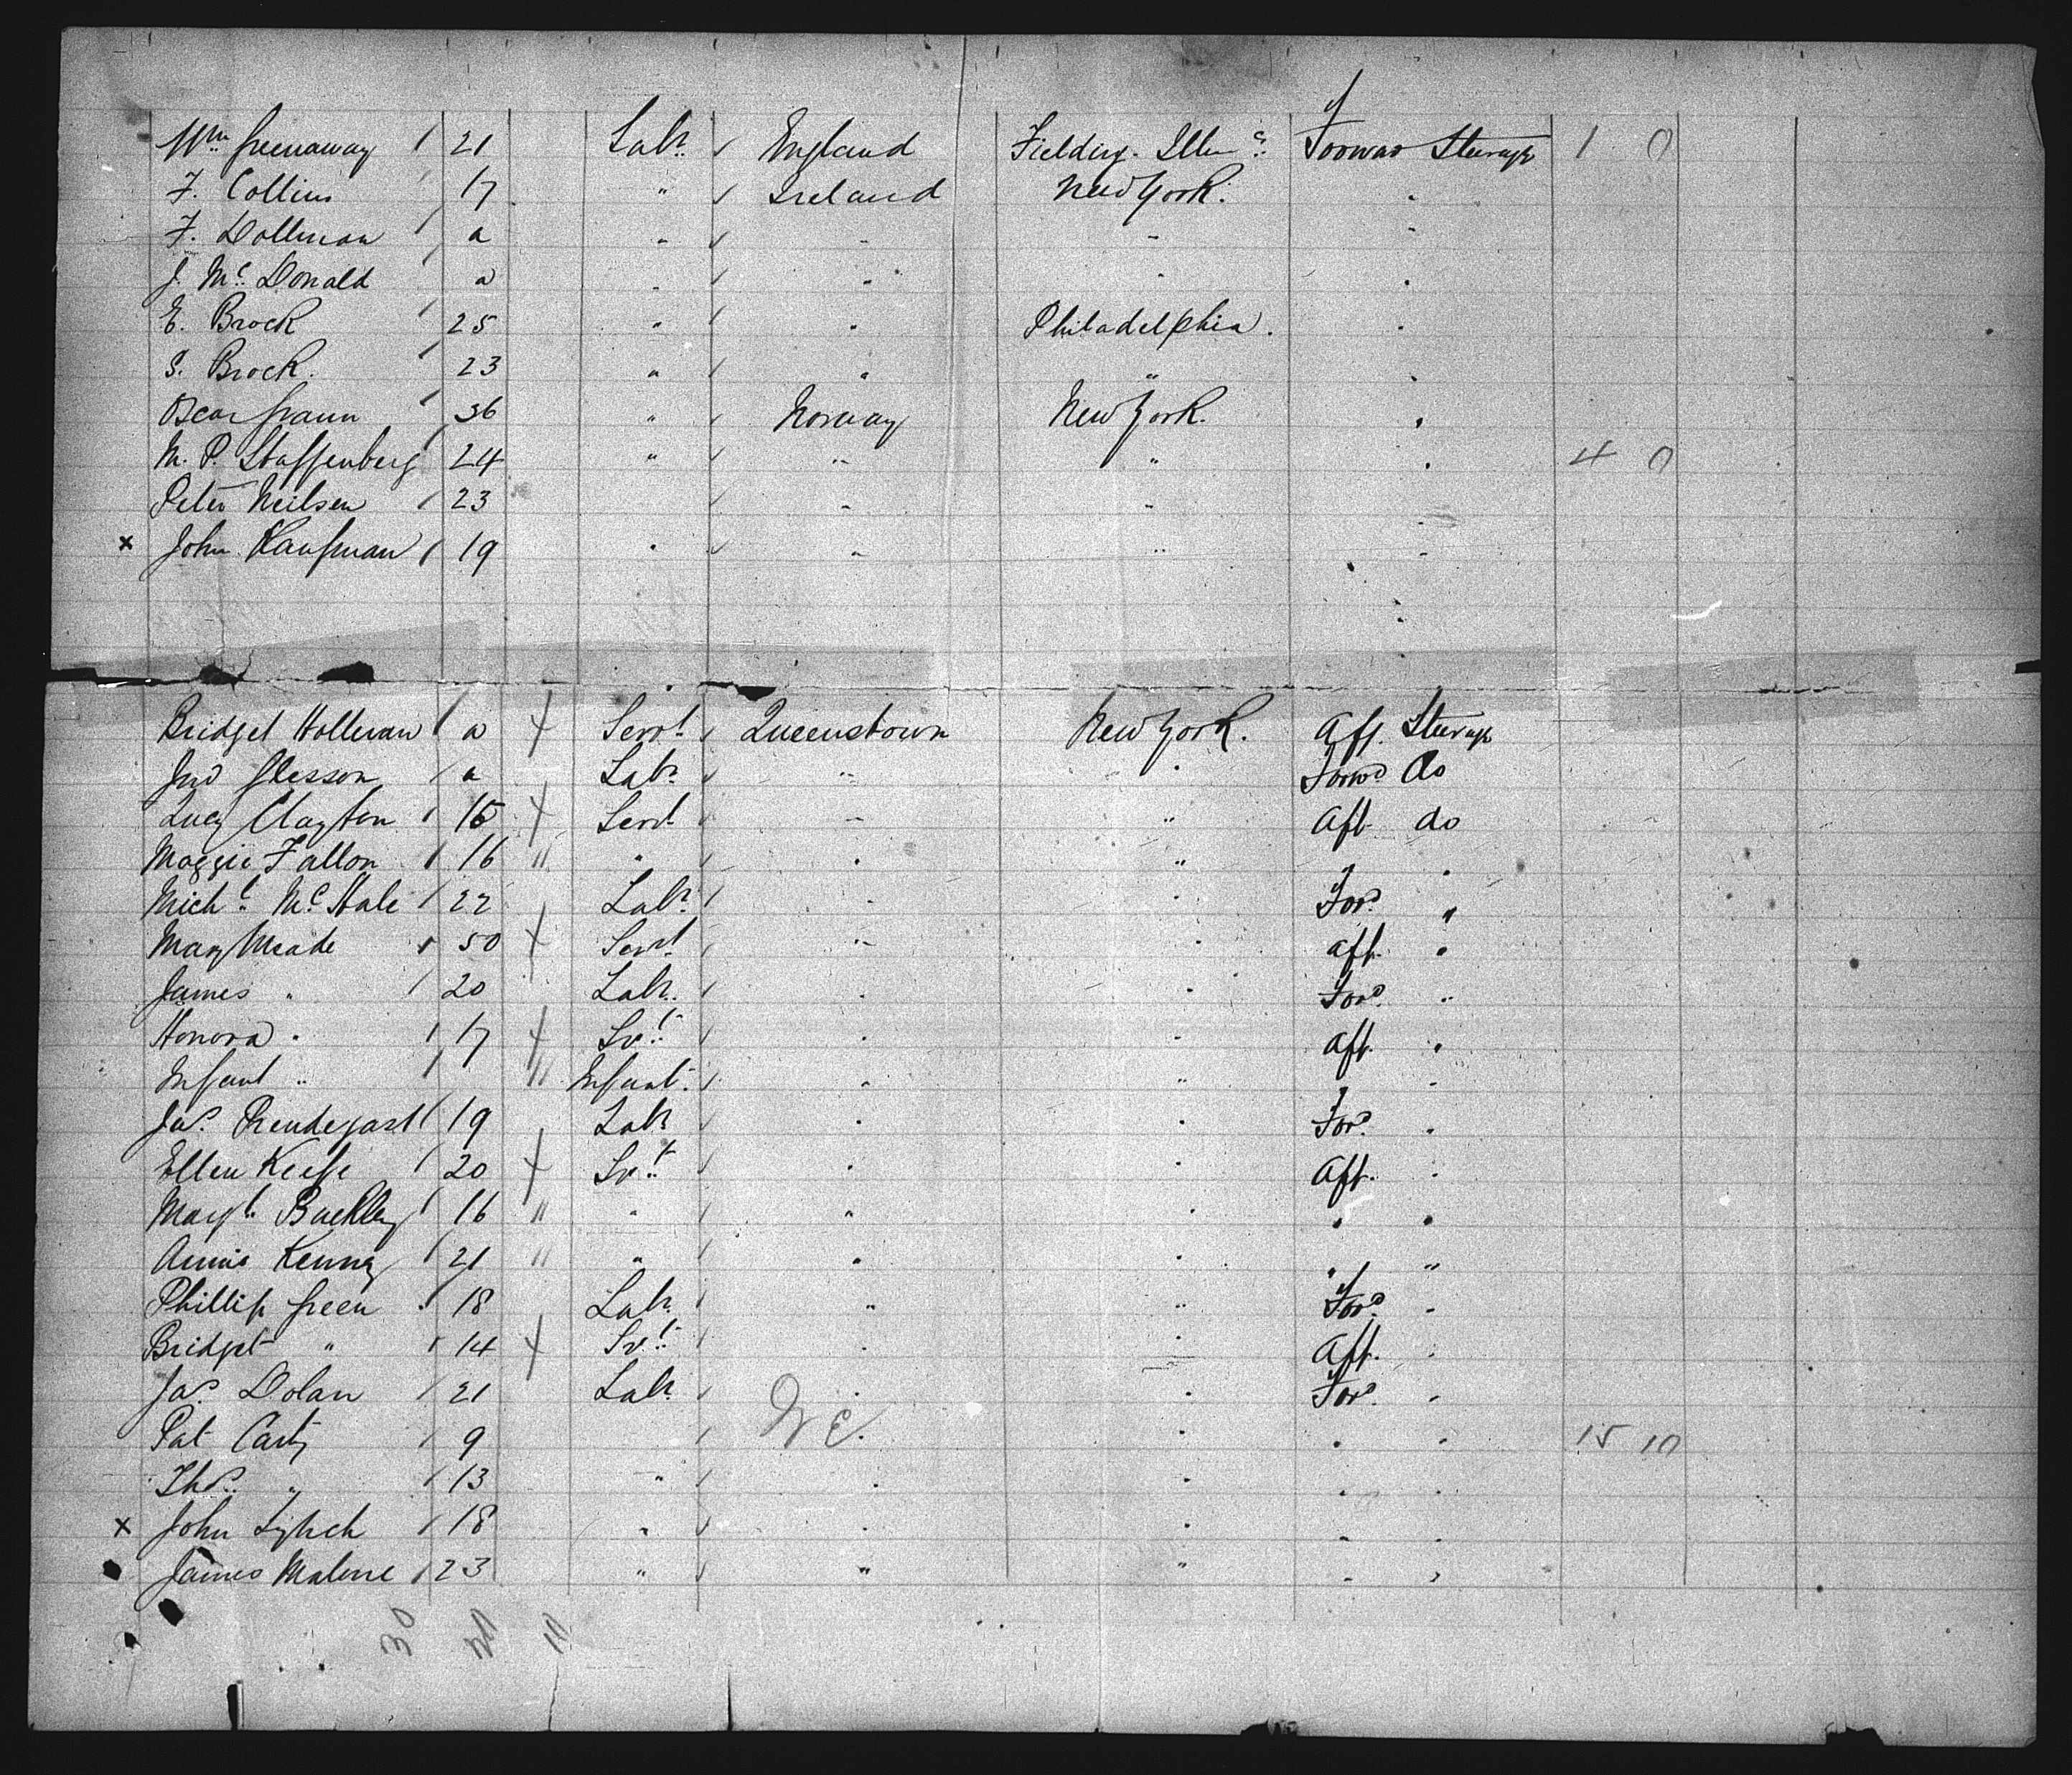 Wm Greenaway / 21 Labr / England Fielding. Illns Forward Steerage 1 0
F. Collins / 17 " / Ireland New York. "
F. Dollman / a " / " " "
J. Mc Donald a " / " " "
E. Brock / 25 " / " Philadelphia. "
S. Brock. / 23 " / " " "
Oscar Graun / 36 " / Norway New York. "
M. P. Staffenberg / 24 " / " " " 4 0
Peter Neilsen / 23 / " " "
x John Kaufman / 19 " / " " "
Bridget Holleran / a + Servt / Queenstown New York. Aft. Steerage
Jno Glesson / a Labr / " " Forwd do
Lucy Clayton / 15 + Servt / " " Aft do
Maggie Fallon / 16 " " / " " " "
Michl Mc Hale / 22 Labr / " " Ford "
Mary Meade / 50 + Servt / " " aft. "
James " / 20 Labr / " " Ford "
Honora " / 17 + Svt / " " aft. "
Infant " / " Infant / " " "
Jas Prendegast / 19 Labr / " " Ford "
Ellen Keefe / 20 + Svt / " " Aft. "
Margt Buckley / 16 " " / " " " "
Annie Kenny / 21 " " / " " " "
Phillip Green / 18 Labr / " " Ford "
Bridget " / 14 + Svt / " " Aft. "
Jas Dolan / 21 Labr / " " Ford "
Pat Carty / 9 / " " " " 15 10
Thos " / 13 " / " " " "
x John Lynch / 18 " / " " " "
James Malone / 23 " / " " " "
30 11